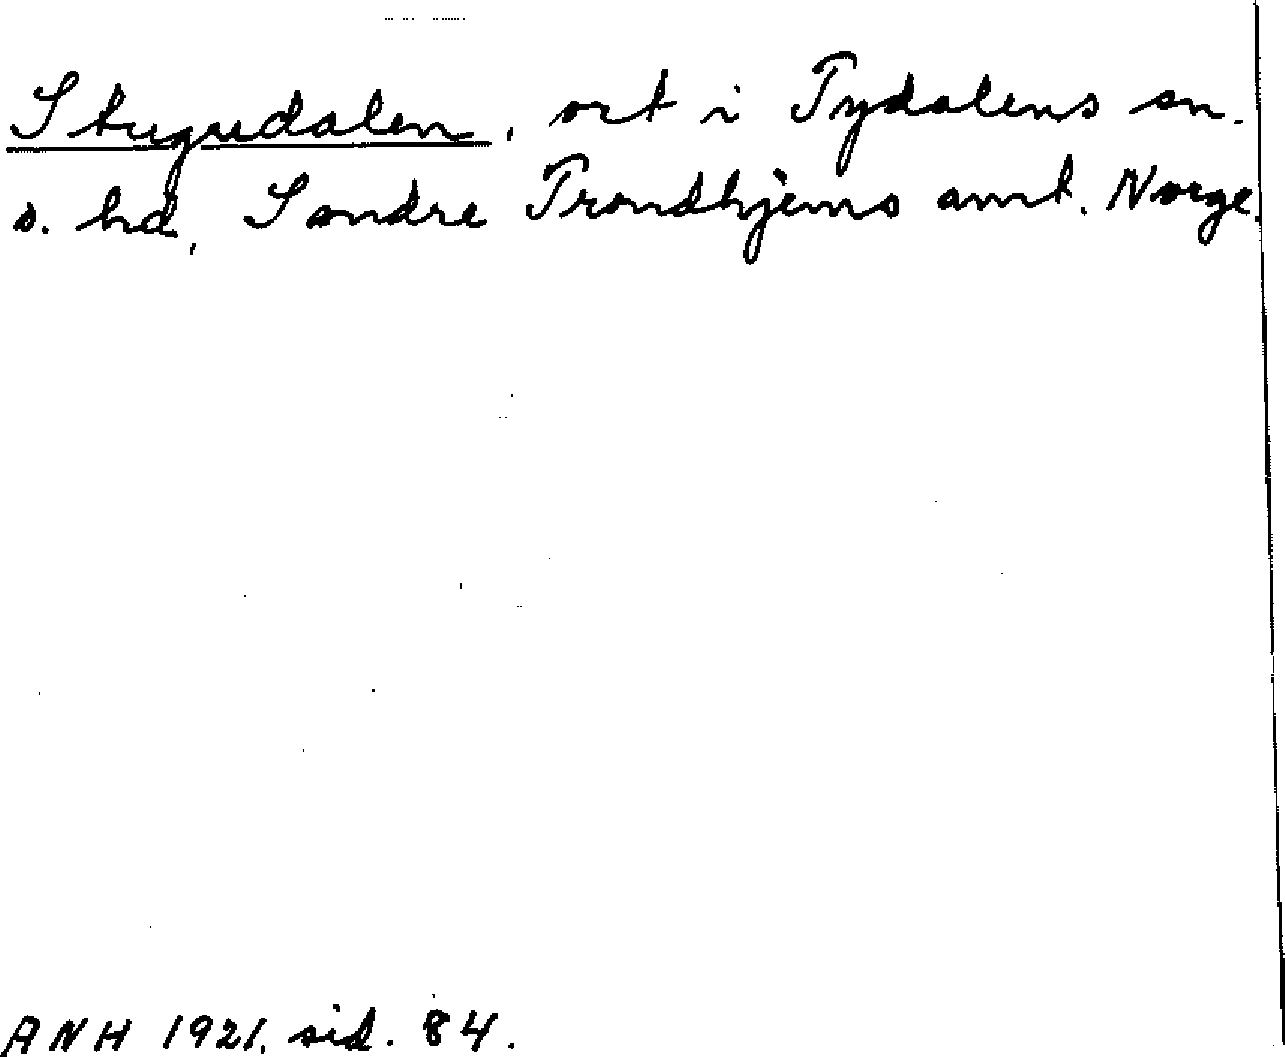 Stugudalen, ort i Tydalens sn.
s. hd, Søndre Trondhjems amt. Norge.
ANH 1921, sid. 84.